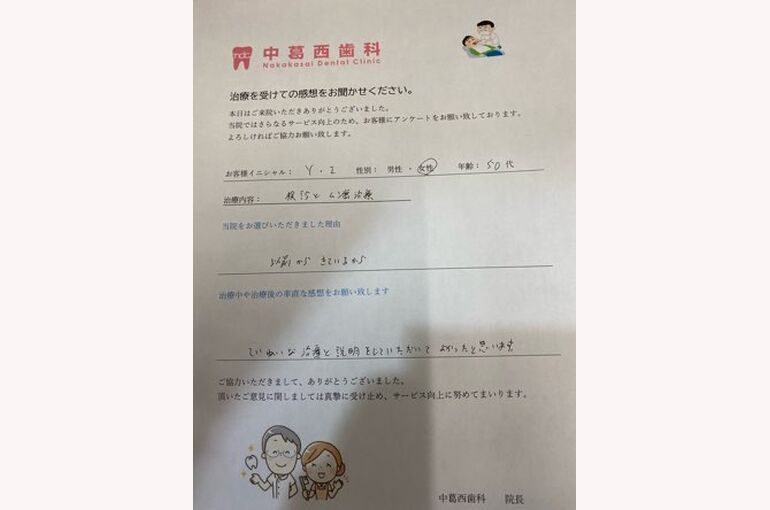 中葛西歯科
Nakakasai Dental Clinic
治療を受けての感想をお聞かせください。
本日はご来院いただきありがとうございました。
当院ではさらなるサービス向上のため、お客様にアンケートをお願い致しております。
よろしければご協力お願い致します。
お客様イニシャル： Y.I 性別： 男性・女性 年齢：50代
治療内容： 検診とむし歯治療
当院をお選びいただきました理由
以前からきているから
治療中や治療後の率直な感想をお願い致します
ていねいな治療と説明をしていただいてよかったと思います
ご協力いただきまして、ありがとうございました。
頂いたご意見に関しましては真摯に受け止め、サービス向上に努めてまいります。
中葛西歯科 院長